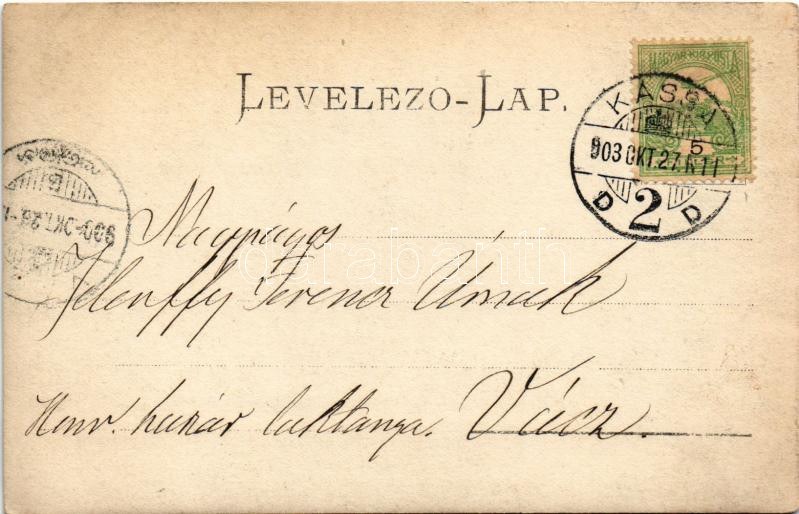 MAGYAR KIR. POSTA
LEVELEZO-LAP.
KASSA
5
903 OKT. 27. N 11
D 2 D
900 OKT. 28
Nagyságos
Jelenffy Ferencz Úrnak
Honv. huszár laktanya. Vácz.
darabanth